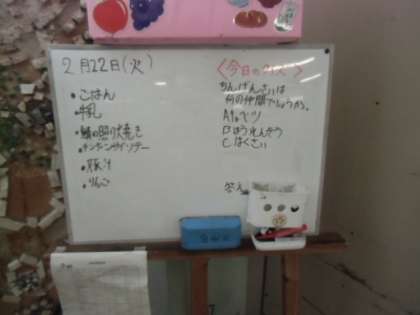 2月22日(火)
・ごはん
・牛乳
・鯖の照り焼き
・チンゲンサイソテー
・豚汁
・りんご
<今日のクイズ>
ちんげんさいは
何の仲間でしょうか。
A キャベツ
B ほうれんそう
C はくさい
答え